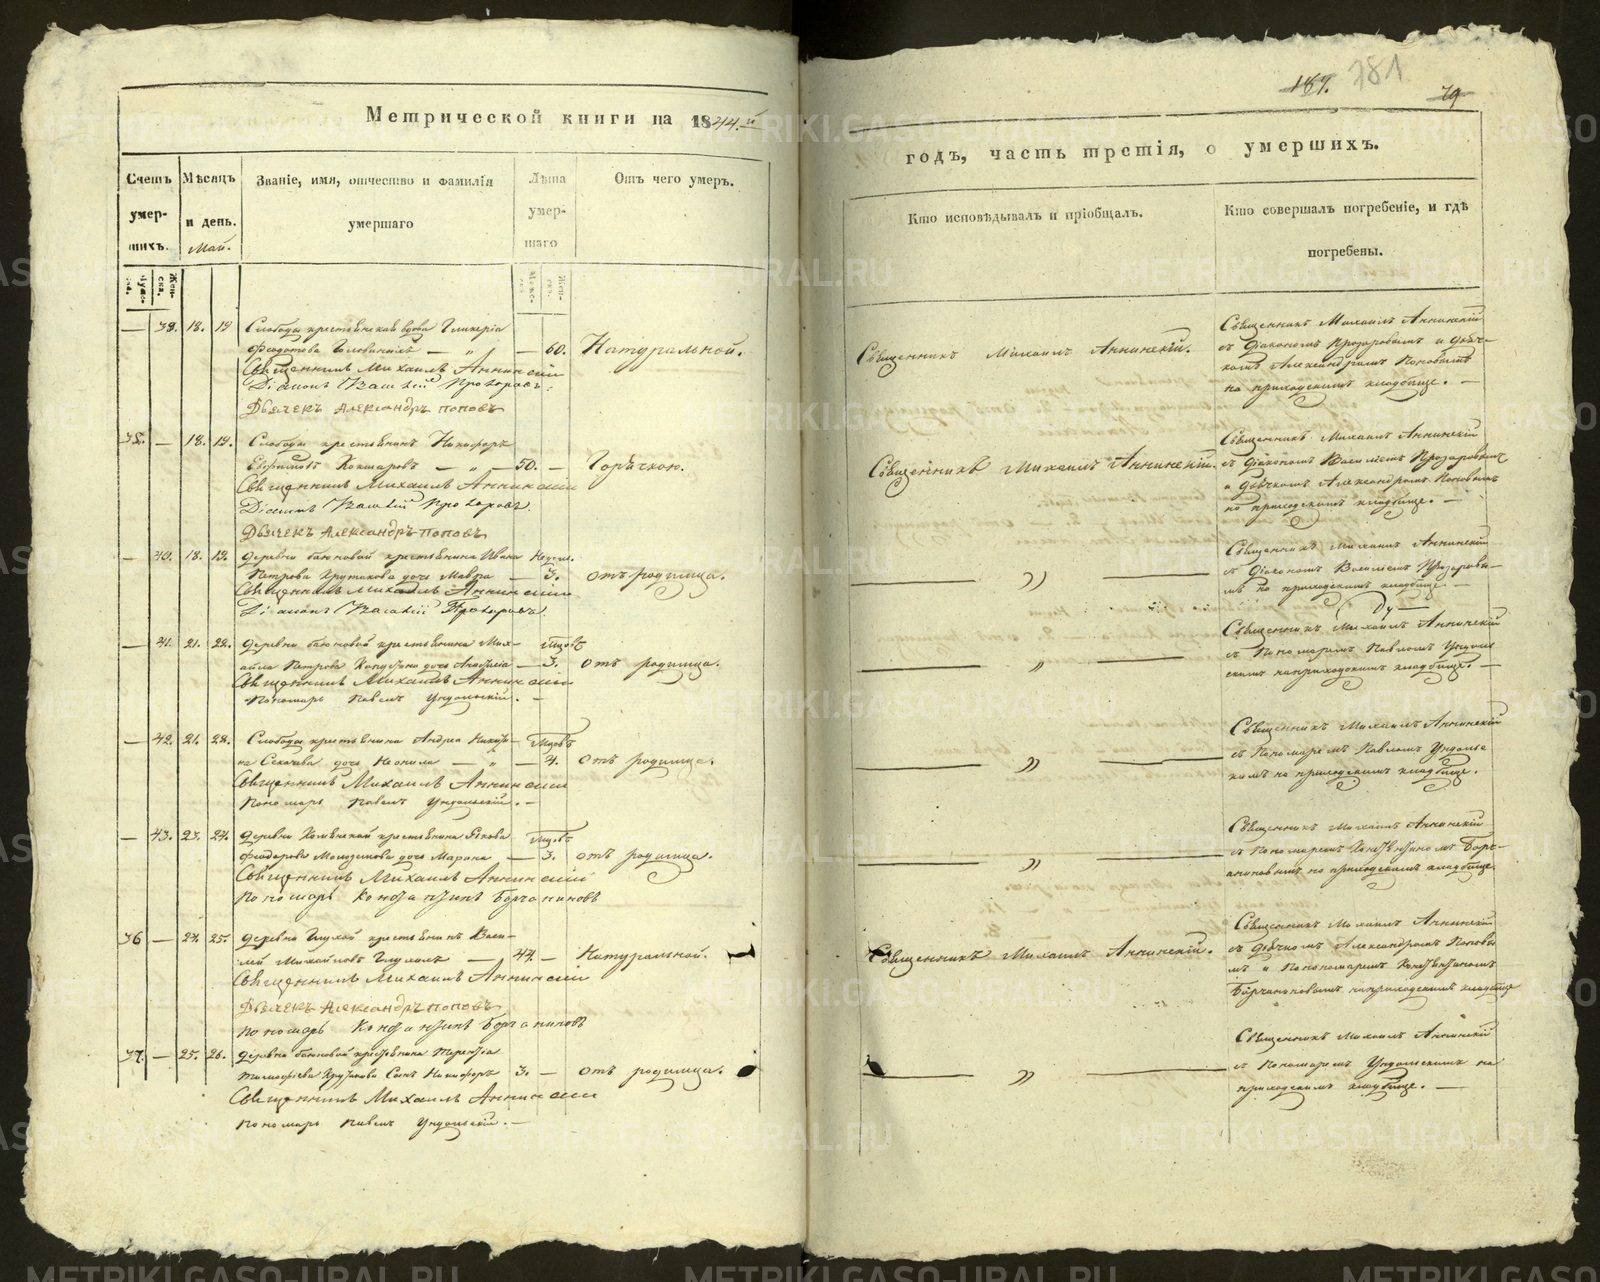 Метрической книги на 1844.й
Счетъ умер-шихъ.
Мѣсяцъ и день.
Май.
Званіе, имя, отчество и фамилія умершаго
Лѣта умер-шаго
Отъ чего умеръ.
— 39. 18. 19 Слободы крестьянская вдова Гликерія
Ѳеодотова — „ — 60. Натуральной.
Священникъ Михаилъ Аннинскій
Діаконъ Василій Прозоровъ.
Дьячекъ Александръ Поповъ
35. — 18. 19. Слободы крестьянинъ Никифоръ
Евфимовъ Кокшаровъ — „ — 50. — Горячкою.
Священникъ Михаилъ Аннинскій
Діаконъ Василій Прозоровъ.
Дьячекъ Александръ Поповъ
— 40. 18. 19. Деревни баяновой крестьянина Ивана Недели.
Петрова Крутикова дочь Мавра — 3. отъ родимца.
Священникъ Михаилъ Аннинскій
Діаконъ Василій Прозоровъ
— 41. 21. 22. Деревни баяновой крестьянина Мих-
аила Петрова дочь Анастасія — 3. отъ родимца.
Священникъ Михаилъ Аннинскій
Пономарь Павелъ Ундольскій. —
— 42. 21. 22. Слободы крестьянина Андреа Никити-
на Секачева дочь Неонила — „ — 4. отъ родимца.
Священникъ Михаилъ Аннинскій
Пономарь Павелъ Ундольскій. —
— 43. 23. 24. Деревни крестьянина Якова
Ѳеодорова дочь Марина — 3. отъ родимца.
Священникъ Михаилъ Аннинскій
Пономарь Константинъ Борчаниновъ
36 — 24. 25. Деревни Глухой крестьянинъ Васи-
лій Михайловъ Глухихъ — 44. — Натуральной.
Священникъ Михаилъ Аннинскій
Дьячекъ Александръ Поповъ
Пономарь Константинъ Борчаниновъ
37. — 25. 26. Деревни баяновой крестьянина Терентіа
Тимофѣева Крутикова Сынъ Никифоръ 3. — отъ родимца.
Священникъ Михаилъ Аннинскій
Пономарь Павелъ Ундольскій. —
187. 781
79
годъ, часть третія, о умершихъ.
Кто исповѣдывалъ и пріобщалъ.
Кто совершалъ погребеніе, и гдѣ погребены.
Священникъ Михаилъ Аннинскій.
Священникъ Михаилъ Аннинскій
съ Діакономъ Прозоровымъ и дьяч-
комъ Александромъ Поповымъ
на приходскимъ кладбище. —
Священникъ Михаилъ Аннинскій.
Священникъ Михаилъ Аннинскій
съ Діакономъ Василіемъ Прозоровым
и дьячкомъ Александромъ Поповымъ
на приходскимъ кладбище. —
— „ —
Священникъ Михаилъ Аннинскій
съ Діакономъ Василіемъ Прозоровы-
мъ на приходскимъ кладбище. —
— „ —
Священникъ Михаилъ Аннинскій
съ Пономаремъ Павломъ Ундоль
скимъ на приходскимъ кладбище. —
— „ —
Священникъ Михаилъ Аннинскій
съ Пономаремъ Павломъ Ундольс
кимъ на приходскимъ кладбище.
— „ —
Священникъ Михаилъ Аннинскій
съ Пономаремъ Константиномъ Борч-
аниновымъ на приходскимъ кладбище.
Священникъ Михаилъ Аннинскій.
Священникъ Михаилъ Аннинскій
съ дьячкомъ Александромъ Поповы
мъ и Пономаремъ Константиномъ
Борчаниновымъ на приходскимъ кладбище
— „ —
Священникъ Михаилъ Аннинскій
съ Пономаремъ Ундольскимъ на
приходскимъ кладбище. —
METRIKI.GASO-URAL.RU